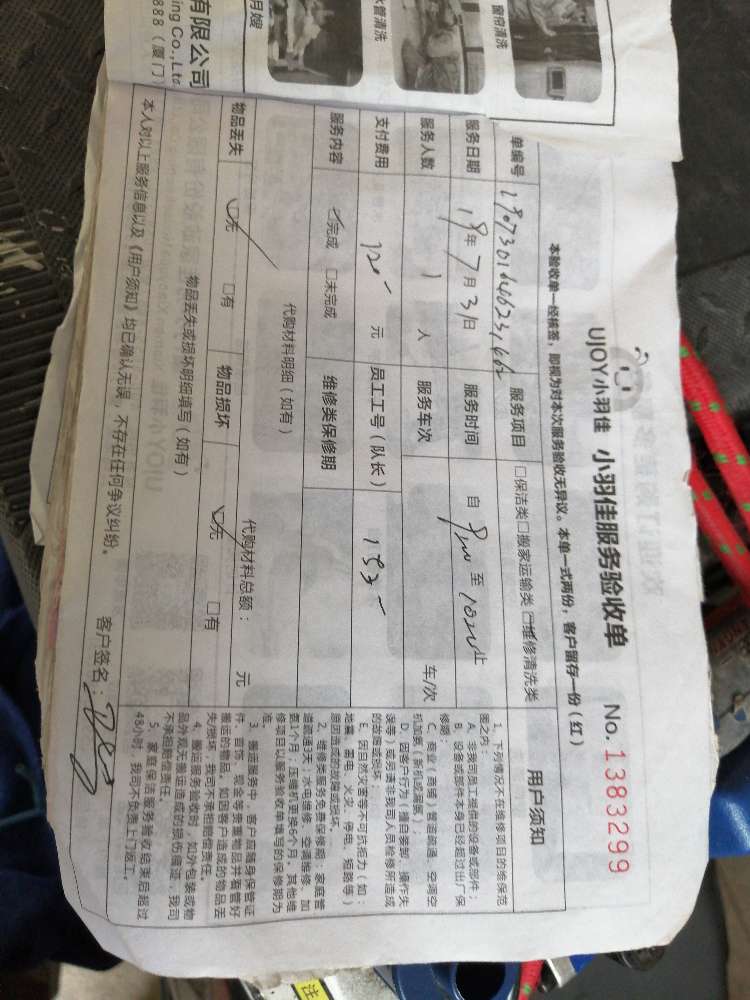 窗帘清洗
水管清洗
月嫂
有限公司
ing Co.,Ltd
888（厦门）
UJOY小羽佳 小羽佳服务验收单 No. 1383299
本验收单一经核签，即视为对本次服务验收无异议。本单一式两份，客户留存一份（红）
单编号 服务项目 □保洁类□搬家运输类☑维修清洗类
服务日期 19年7月31日 服务时间 自 至 止
服务人数 1 人 服务车次 车/次
支付费用 120 元 员工工号（队长） 193
服务内容 ☑完成 □未完成 维修类保修期
代购材料明细（如有） 代购材料总额： 元
物品丢失 ☑无 □有 物品损坏 ☑无 □有
物品丢失或损坏明细填写（如有）
本人对以上服务信息以及《用户须知》均已确认无误，不存在任何争议纠纷。
客户签名：
用户须知
1、下列情况不在维修项目的维保范
围之内：
A、非我司员工提供的设备或部件；
B、设备或部件本身已经超过出厂保
修期；
C、商业（商铺）管道疏通、空调空
机加氨（新机或漏氨）；
D、因客户行为（擅自装卸、操作失
误等）或明责非我司人员检修所造成
的故障或损坏；
E、因自然灾害等不可抗拒力（如：
地震、雷电、火灾、停电、短路等）
原因造成的故障或损坏。
2、维修类服务免费保修期：家庭管
道疏通1天；水电维修、空调维修、加
氨1个月；压缩机更换6个月，其他维
修项目以服务验收单填写的保修期为
准。
3、搬运服务中，客户应随身保管证
件、首饰、现金等贵重物品并看管好
搬运的物品，如因客户造成的物品丢
失/损坏，我司不承担赔偿责任。
4、搬运服务验收时，如外包装或物
品外观无搬运造成的损伤痕迹，我司
不承担赔偿责任。
5、家庭保洁服务验收结束后超过
48小时，我司不负责上门返工。
注